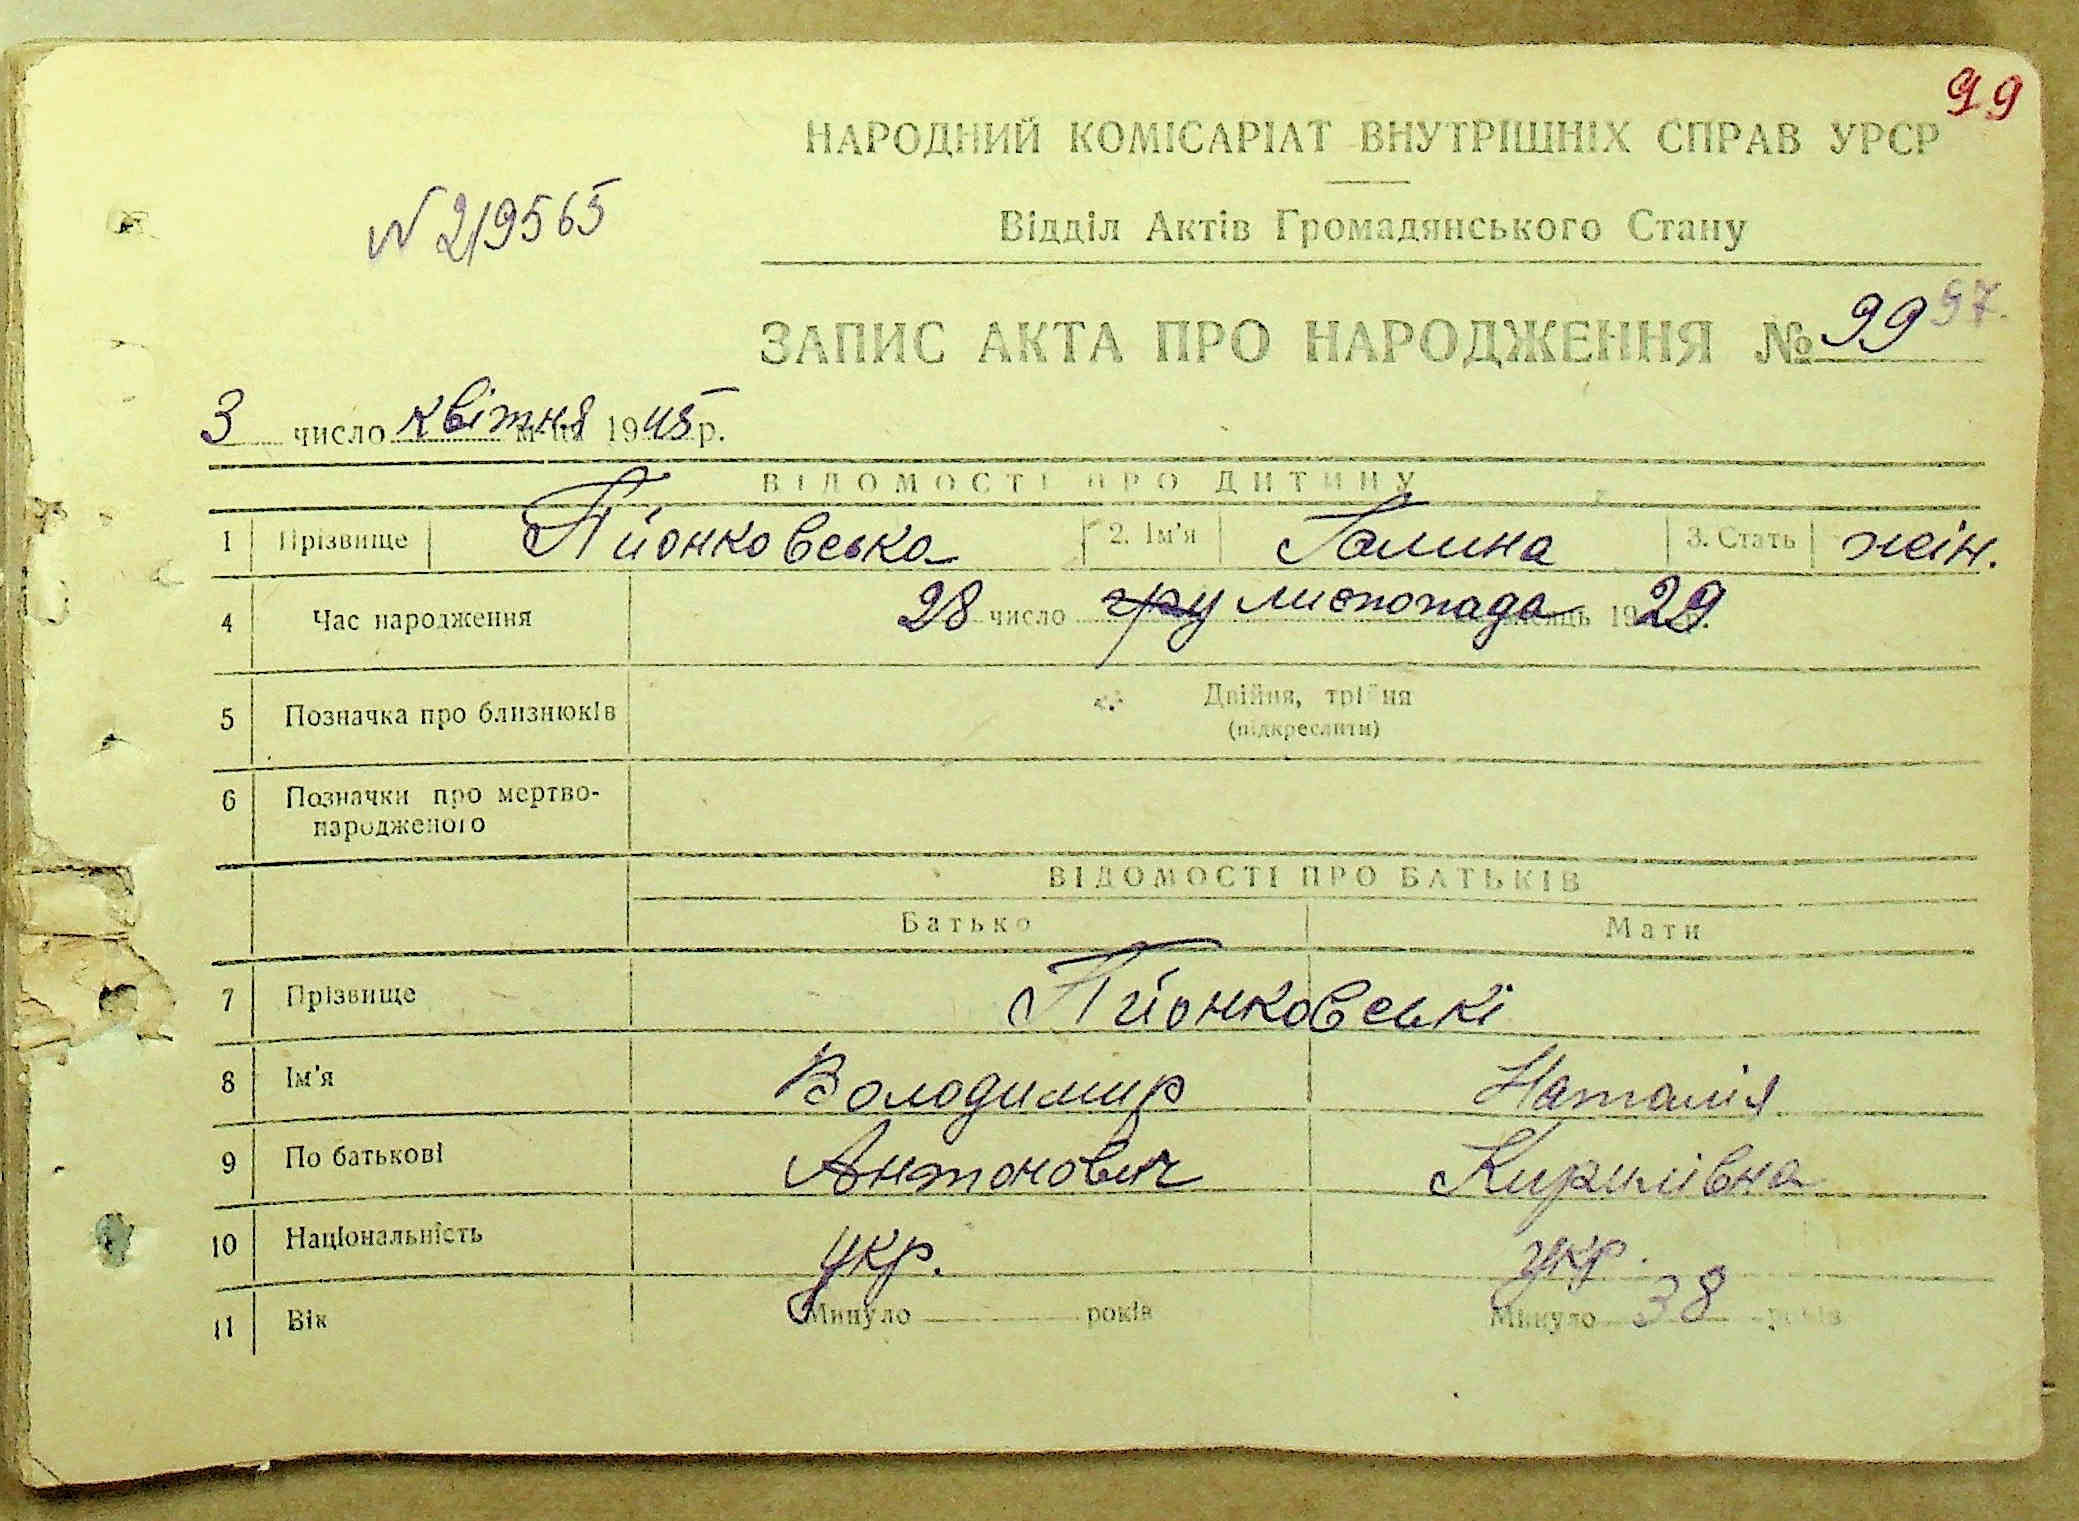 99
НАРОДНИЙ КОМІСАРІАТ ВНУТРІШНІХ СПРАВ УРСР
N 219565
Відділ Актів Громадянського Стану
ЗАПИС АКТА ПРО НАРОДЖЕННЯ № 99 97.
3 число квітня м-ця 1945 р.
ВІДОМОСТІ ПРО ДИТИНУ
1 Прізвище Пйонковська 2. Ім'я Галина 3. Стать жін.
4 Час народження 28 число гру листопада місяць 1929 р.
5 Позначка про близнюків Двійня, трійня
(підкреслити)
6 Позначки про мертво-
народженого
ВІДОМОСТІ ПРО БАТЬКІВ
Батько Мати
7 Прізвище Пйонковські
8 Ім'я Володимир Наталія
9 По батькові Антонович Кирилівна
10 Національність укр. укр.
11 Вік Минуло років Минуло 38 років